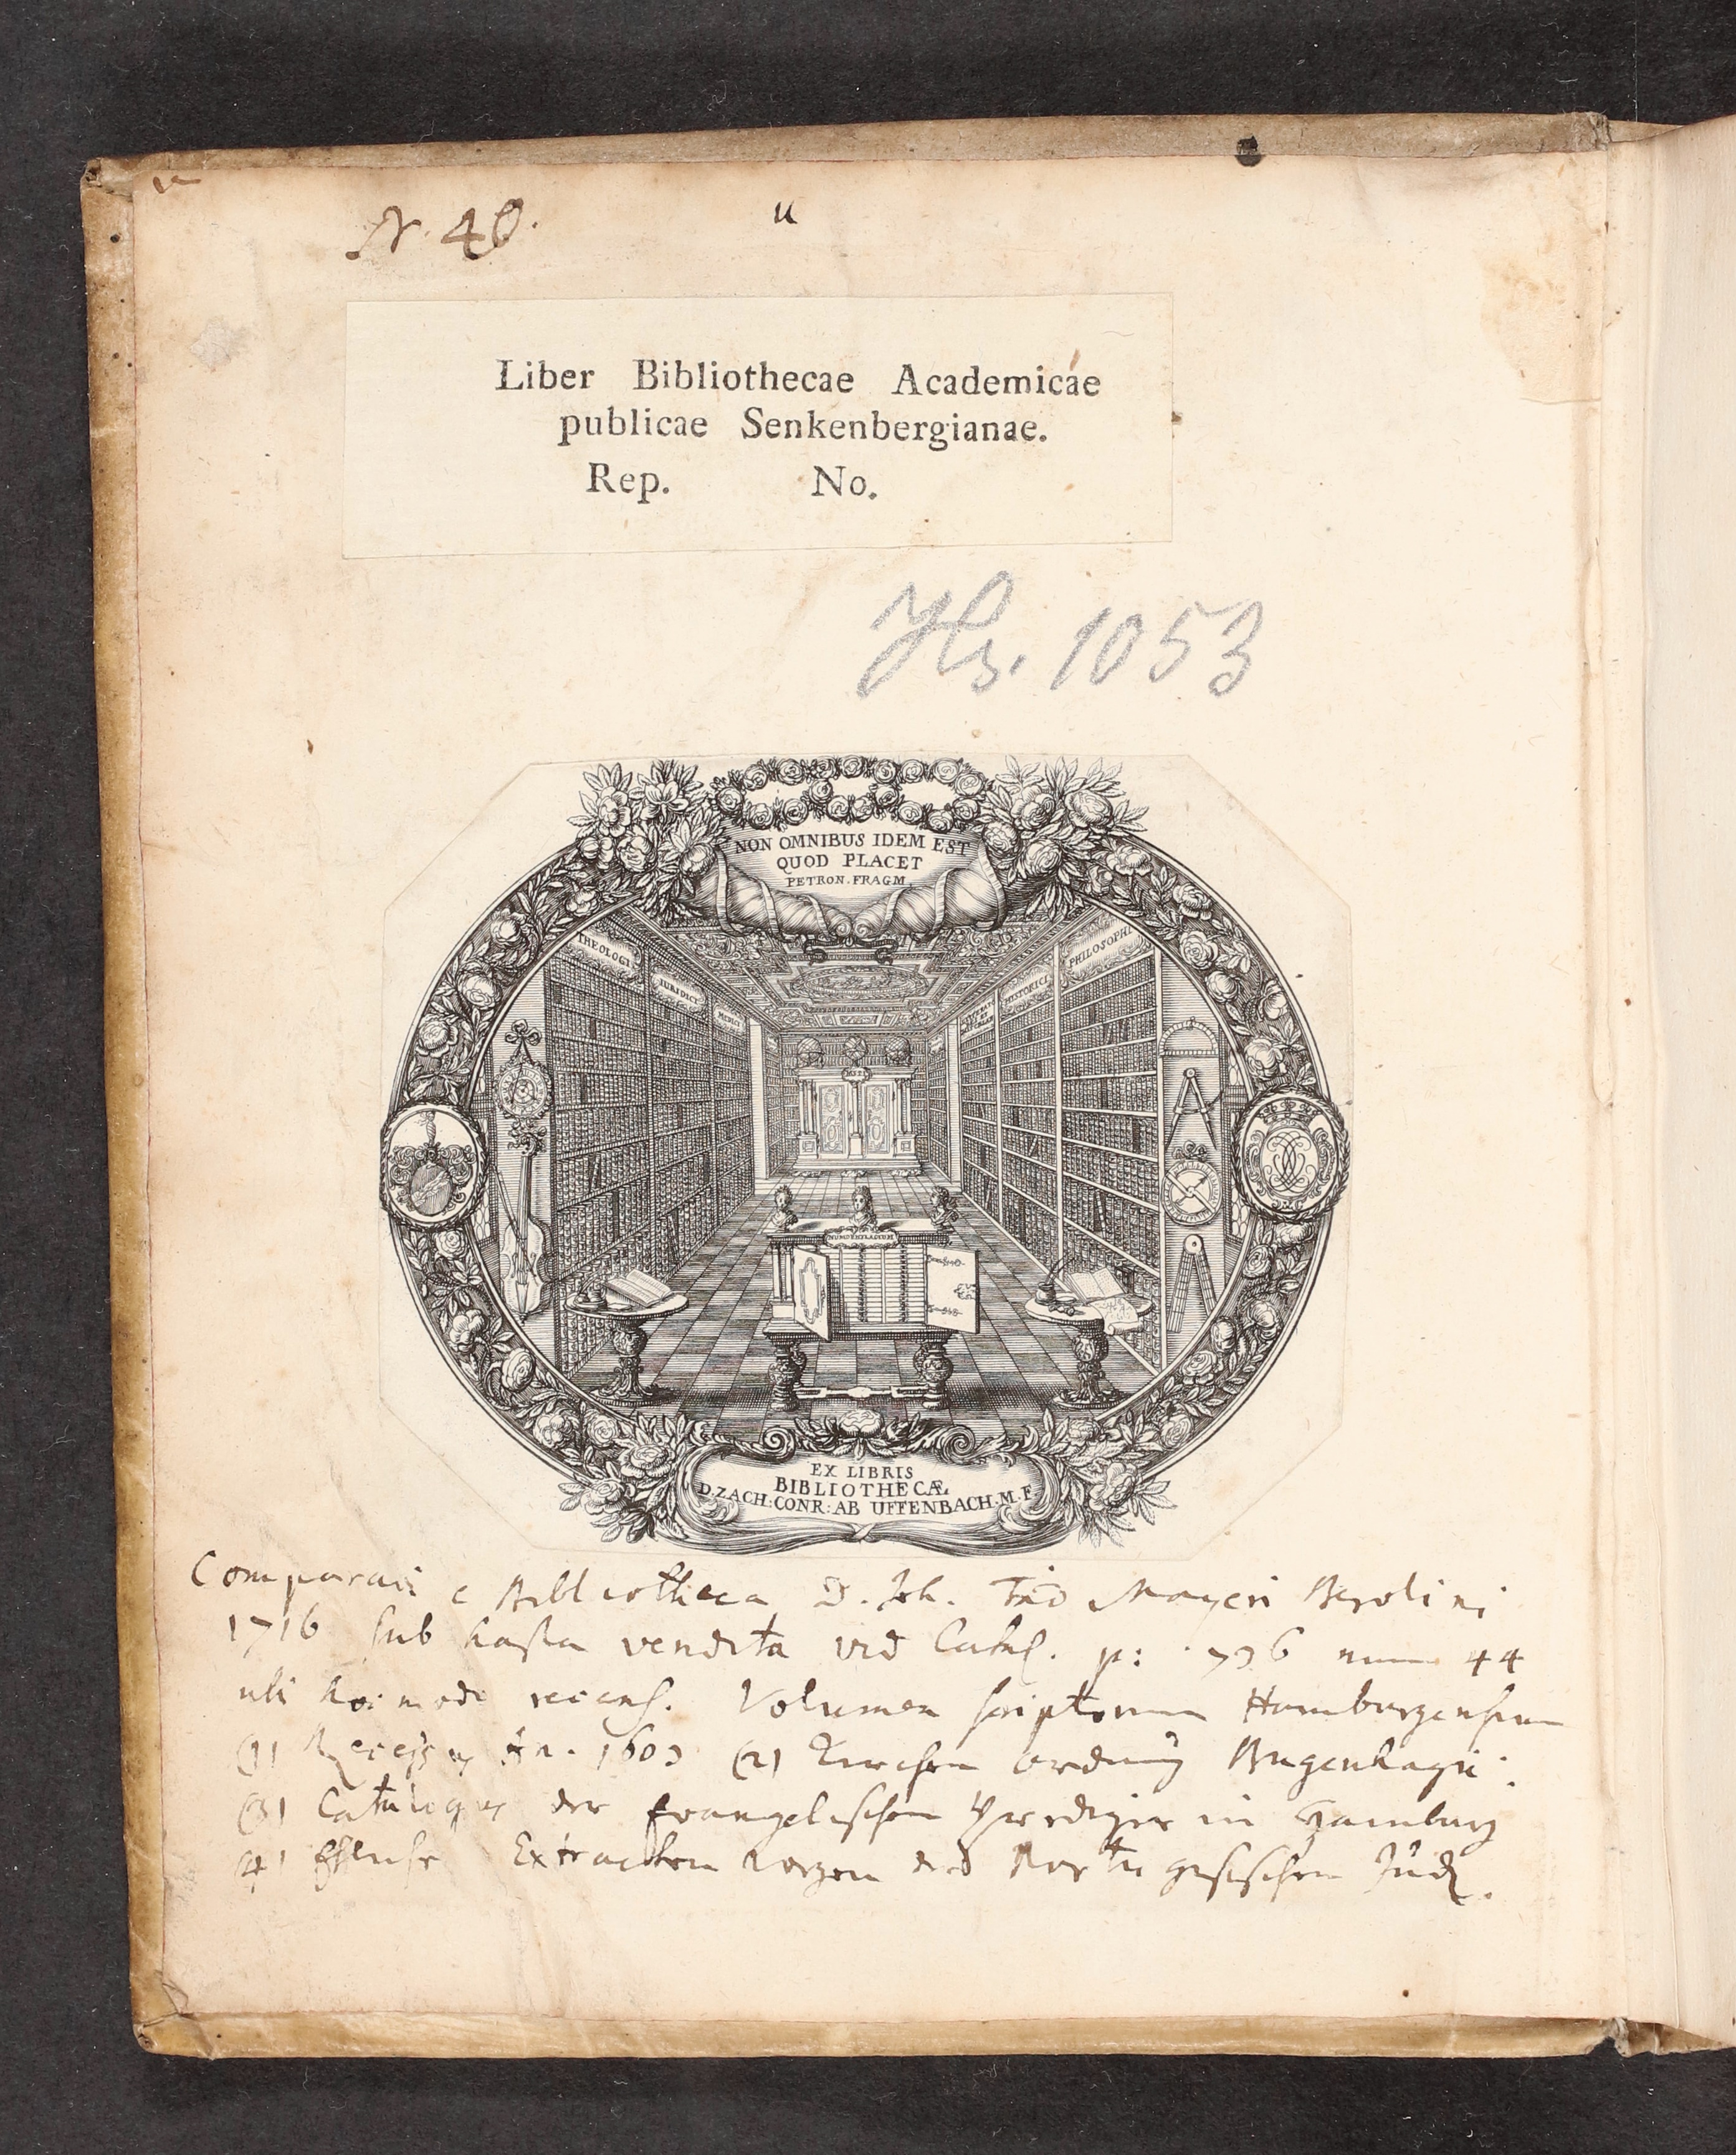 N. 40.
u
Liber Bibliothecae Academicae
publicae Senkenbergianae.
Rep. No.
Hs. 1053
NON OMNIBUS IDEM EST
QUOD PLACET
PETRON. FRAGM.
THEOLOGI
IURIDICI
MEDICI
HISTORICI
PHILOSOPHI
MSTI
NUMOPHILACIUM
EX LIBRIS
BIBLIOTHECÆ
D. ZACH: CONR: AB UFFENBACH. M. F.
Comparavi e Bibliotheca D. Joh. Frid Mayeri Berolini
1716 sub hasta vendita vid Catal. p: 736 num 44
ubi hoc modo recens. Volumen scriptorum Hamburgensium
(1) Recessus An. 1603 (2) Kirchen ordnung Bugenhagii.
(3) Catalogus der Evangelischen Prediger in Hamburg
4) Extracten wegen der Portugesischen Jud.